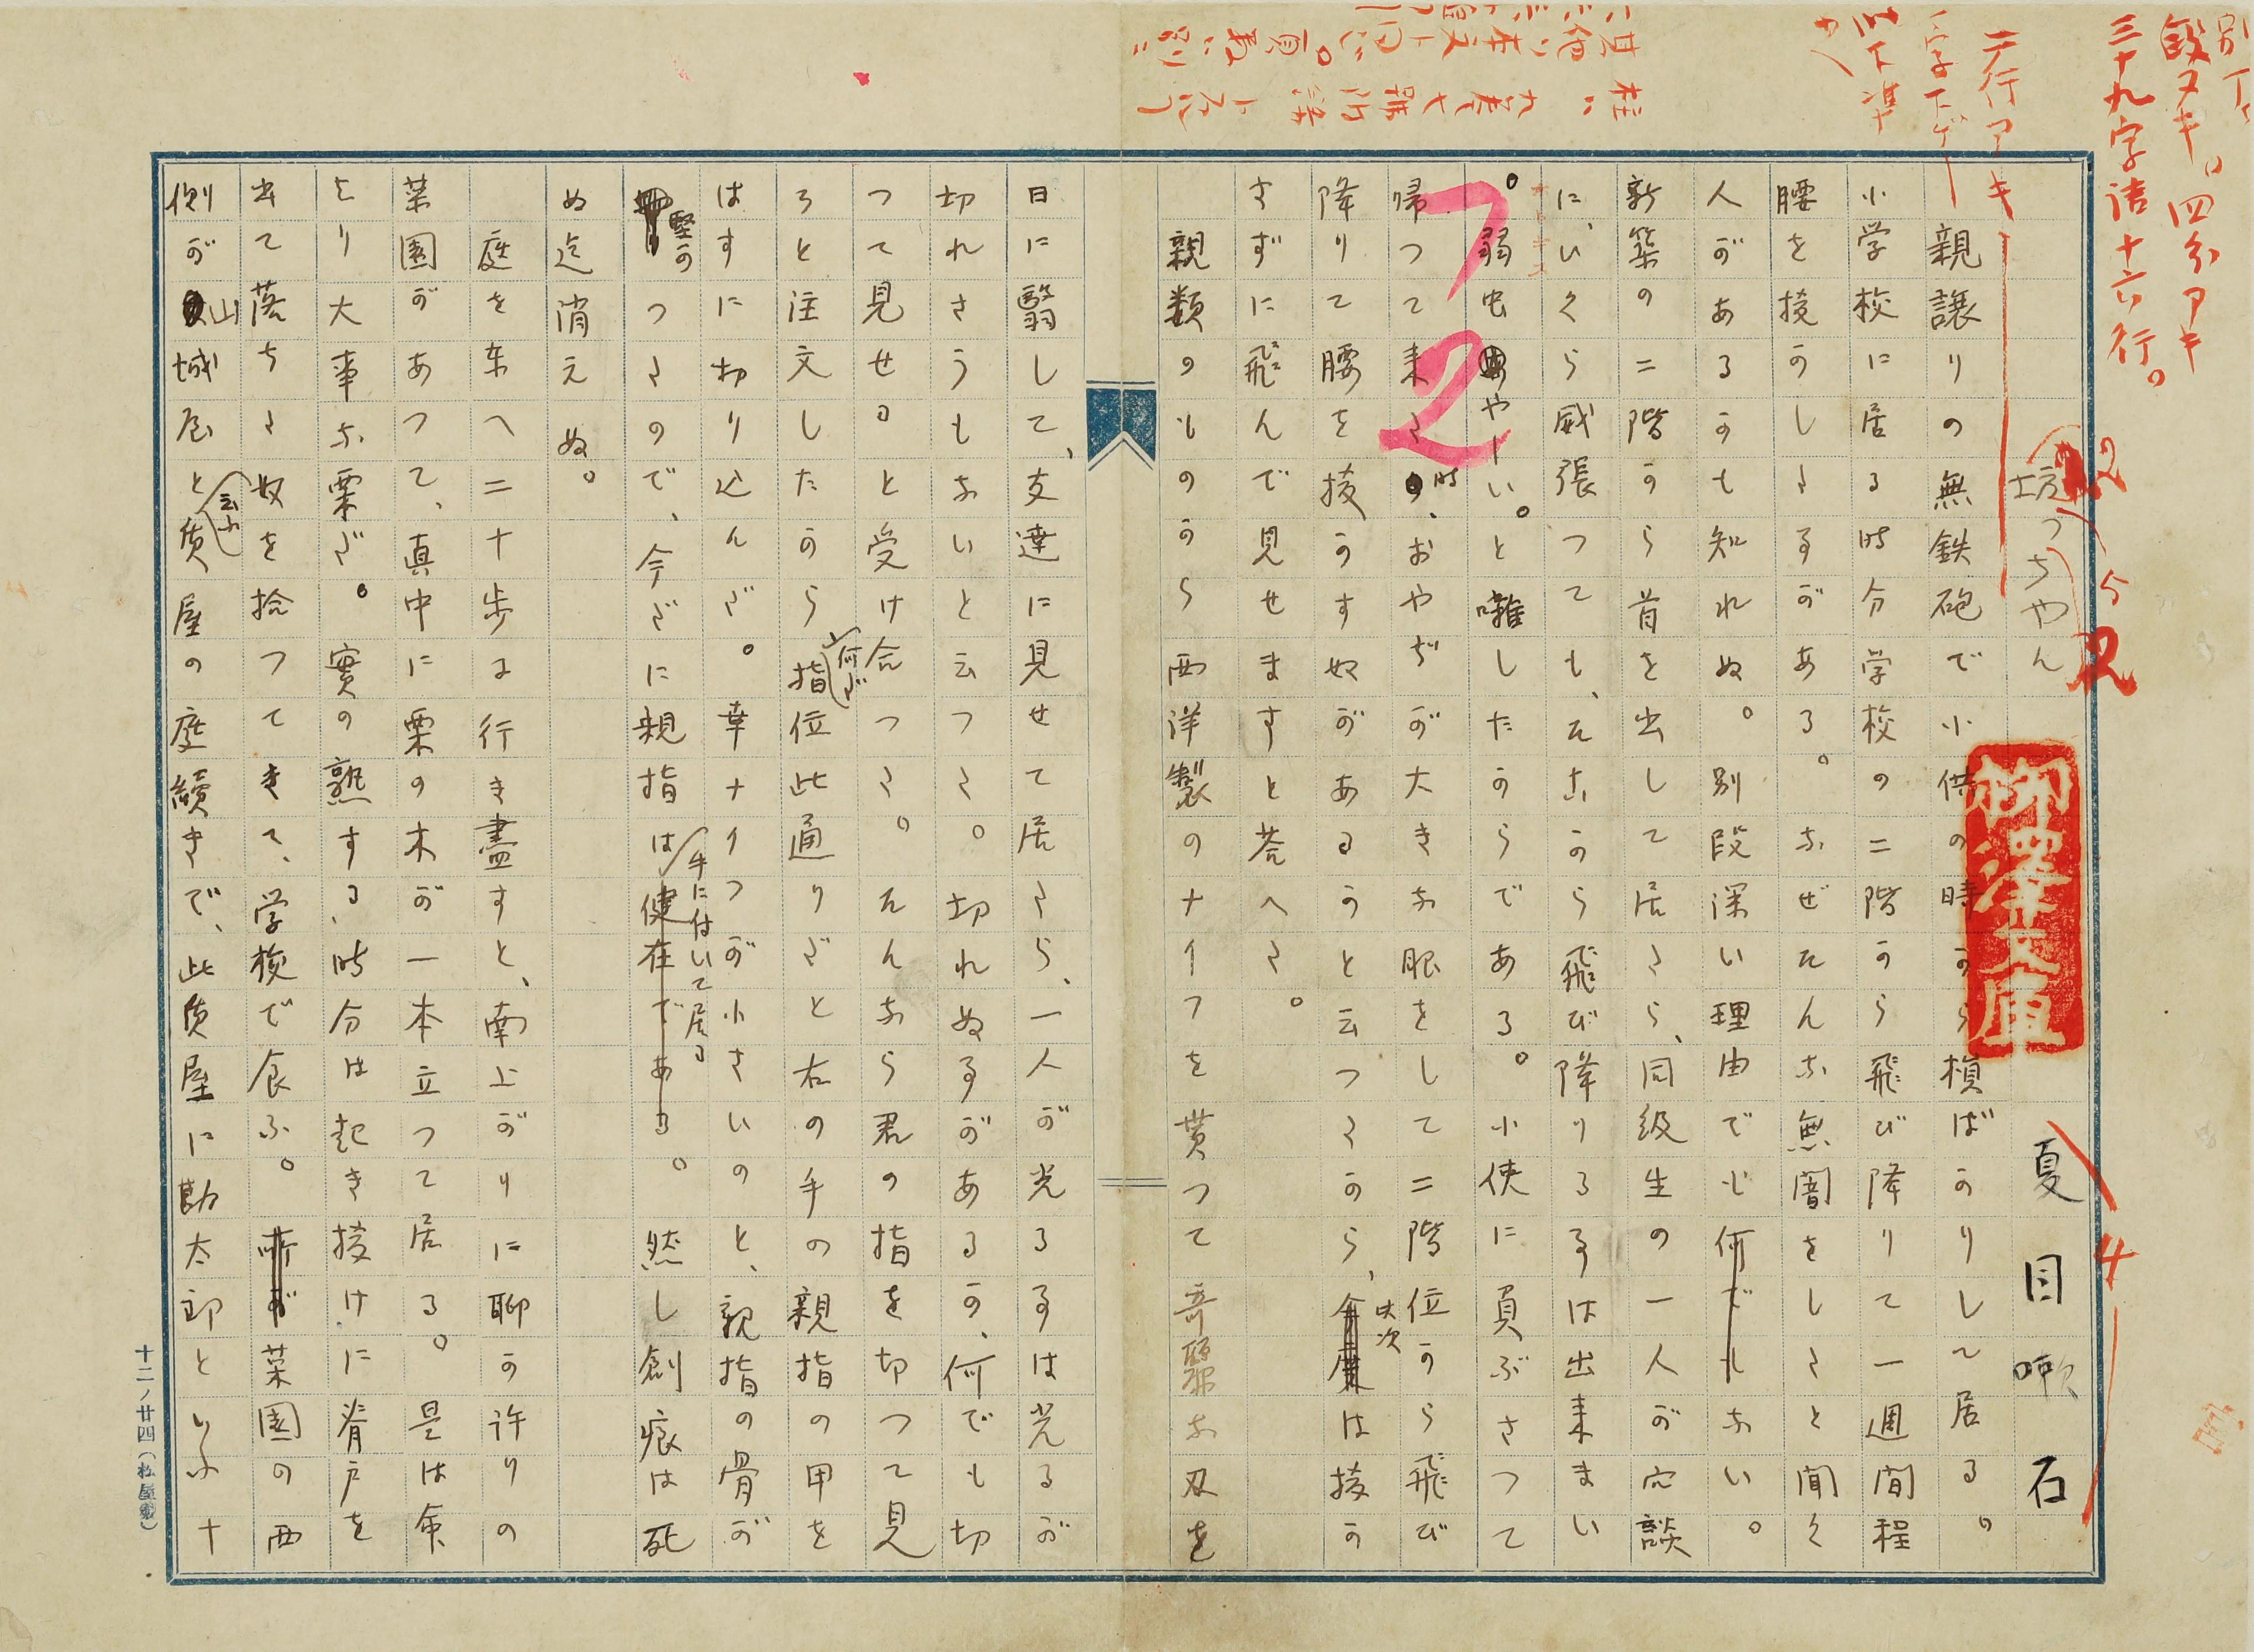 別丁
段ヌキ。四分アキ
三十九字詰十六行。
二行アキ
一字下ゲ
以下準
坊っちやん
夏目漱石
親譲りの無鉄砲で小供の時から損ばかりして居る。
小学校に居る時分学校の二階から飛び降りて一週間程
腰を抜かした事がある。なぜそんな無闇をしたと聞く
人があるかも知れぬ。別段深い理由でも何でもない。
新築の二階から首を出して居たら、同級生の一人が冗談
に、いくら威張つても、そこから飛び降りる事は出来まい
。弱虫やーい。と囃したからである。小使に負ぶさつて
帰つて来た時、おやぢが大きな眼をして二階位から飛び
降りて腰を抜かす奴があるかと云つたから、此次は抜か
さずに飛んで見せますと答へた。
親類のものから西洋製のナイフを貰つて奇麗な刃を
日に翳して、友達に見せて居たら、一人が光る事は光るが
切れさうもないと云つた。切れぬ事があるか、何でも切
つて見せると受け合つた。そんなら君の指を切つて見
ろと注文したから何だ指位此通りだと右の手の親指の甲を
はすに切り込んだ。幸ナイフが小さいのと、親指の骨が
堅かつたので、今だに親指は手に付いて居る。然し創痕は死
ぬ迄消えぬ。
庭を東へ二十歩に行き盡すと、南上がりに聊か許りの
菜園があつて、真中に栗の木が一本立つて居る。是は命
より大事な栗だ。實の熟する時分は起き抜けに脊戸を
出て落ちた奴を拾つてきて、学校で食ふ。菜園の西
側が山城屋と云ふ質屋の庭續きで、此質屋に勘太郎といふ十
柳澤文庫
72
十二ノ廿四(松屋製)